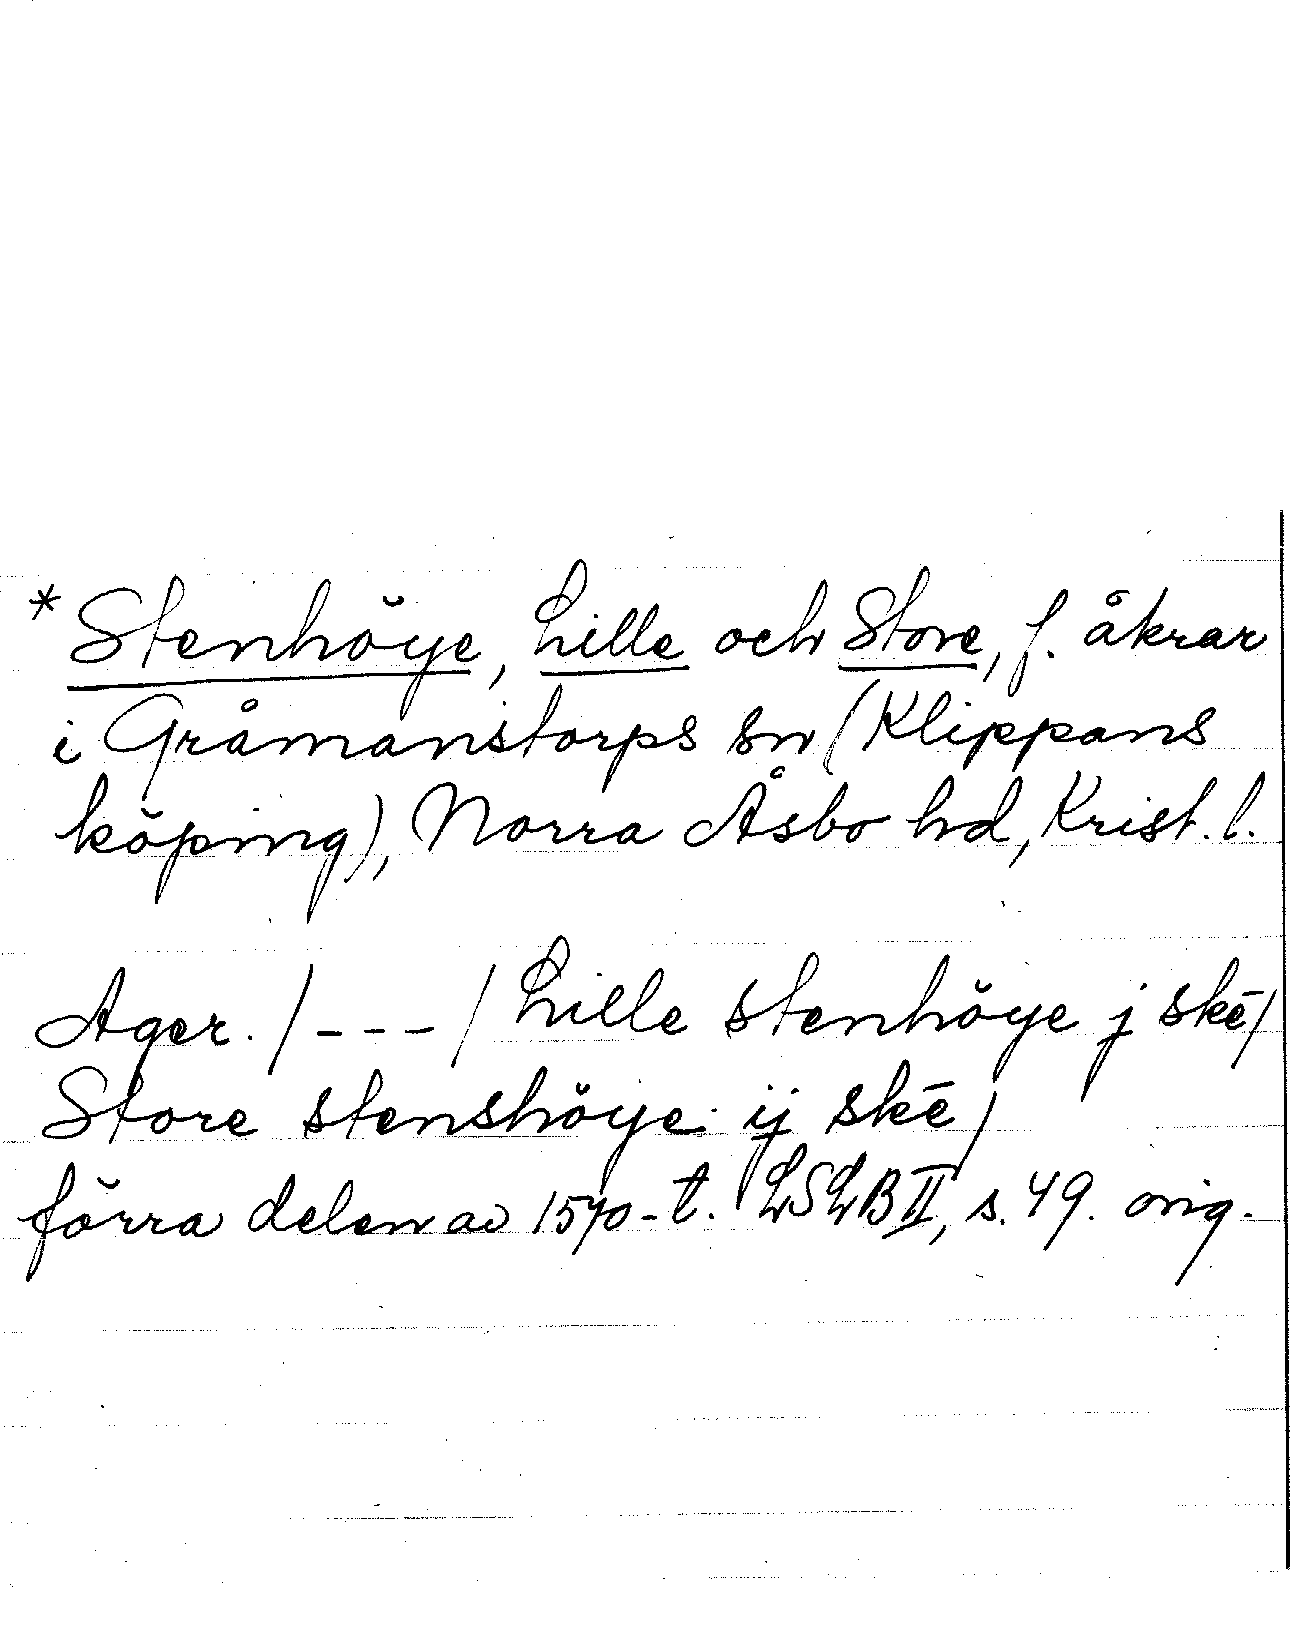 *Stenhöye, Lille och Store, f. åkrar
i Gråmanstorps sn (Klippans
köping), Norra Åsbo hd, Krist. l.
Ager. /---/ Lille stenhöye j skē/
Store stenshöye ij skē/
förra delen av 1570-t. LSLB II, s. 49. orig.